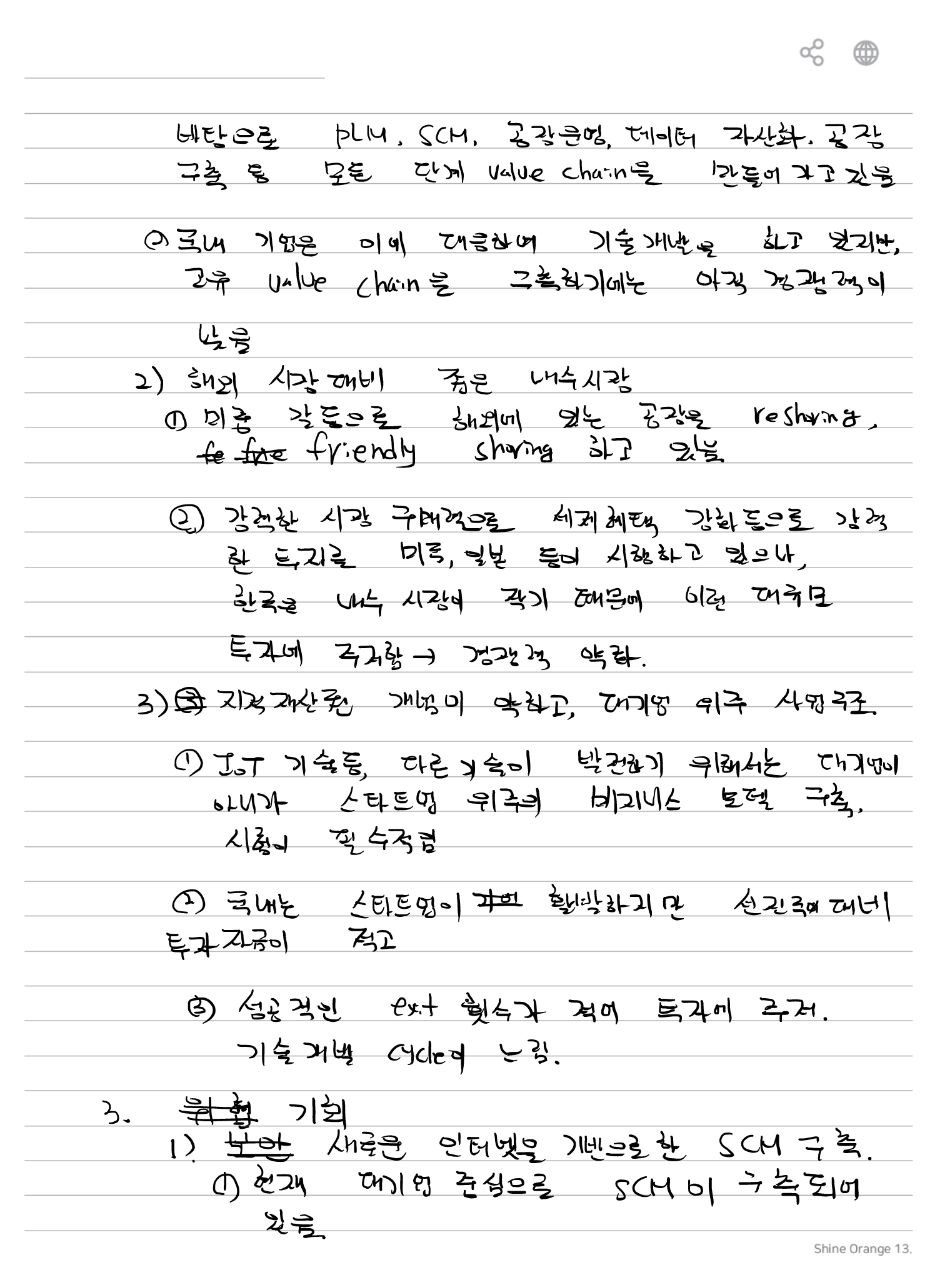 바탕으로 PLM, SCM, 공장운영, 데이터 자산화, 공장
구축 등 모든 단계 value chain을 만들어 가고 있음
② 국내 기업은 이에 대응하여 기술개발을 하고 있지만,
고유 value chain을 구축하기에는 아직 경쟁력이
낮음
2) 해외 시장 대비 좁은 내수시장
① 미중 갈등으로 해외에 있는 공장을 reshoring,
friendly shoring 하고 있음
② 강력한 시장 구매력으로 세제혜택 강화등으로 강력
한 투자를 미국, 일본 등이 시행하고 있으나,
한국은 내수 시장이 작기 때문에 이런 대규모
투자에 주저함 → 경쟁력 약화.
3) 지적재산권 개념이 약하고, 대기업 위주 사업구조.
① IoT 기술등, 다른 기술이 발전하기 위해서는 대기업이
아니가 스타트업 위주의 비지니스 모델 구축,
시험이 필수적임
② 국내는 스타트업이 활발하지만 선진국에 대비
투자 자금이 적고
③ 성공적인 exit 횟수가 적어 투자에 주저.
기술개발 cycle이 느림.
3. 기회
1) 새로운 인터넷을 기반으로 한 SCM 구축.
① 현재 대기업 중심으로 SCM이 구축되어
있음
Shine Orange 13.